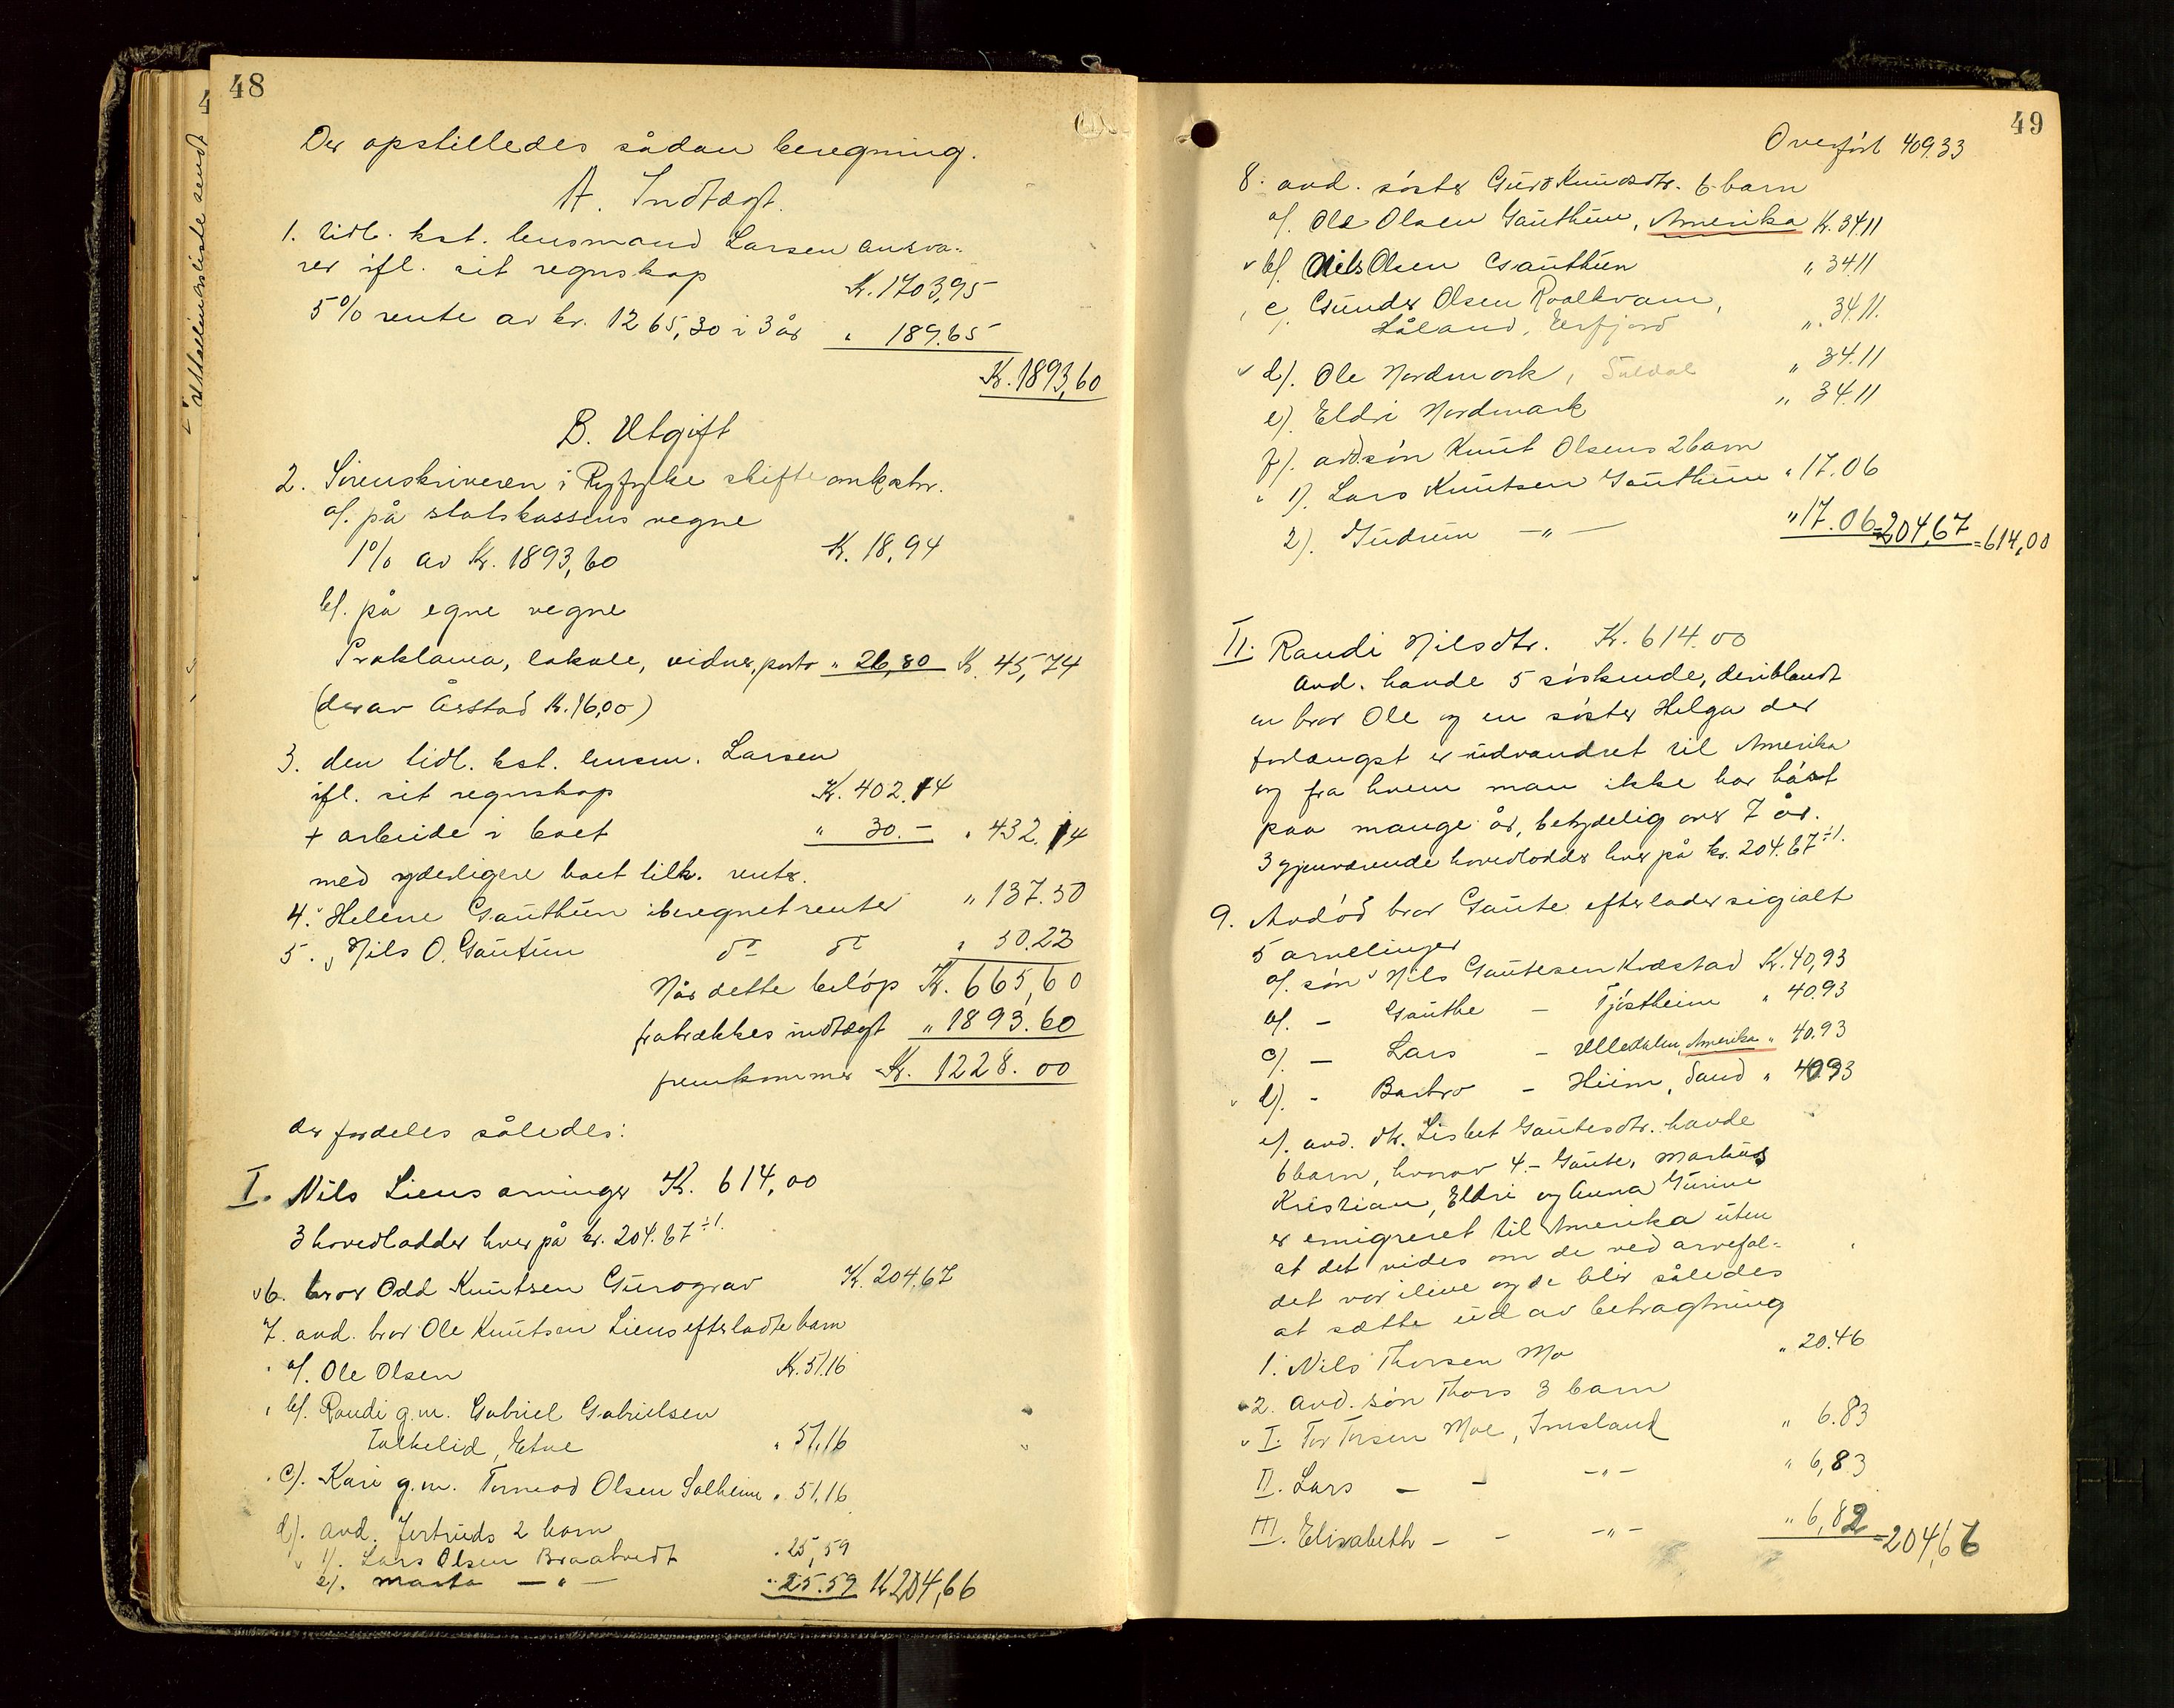 48
Der opstilledes sådan beregning.
A. Indtægt.
1. tidl. kst. lensmand Larsen ansva-
rer ifl. sit regnskap K. 1703,95
5% rente av kr. 1265,30 i 3 år " 189.65
K. 1893,60
B. Utgift
2. Sorenskriveren i Ryfylke skifteomkostn.
a/. på statskassens vegne
1% av Kr. 1893,60 K. 18,94
b/. på egne vegne
Proklama, lokale, vidner, porto " 26,80 K. 45,74
(derav Årstad K. 16,00)
3. den tidl. kst. lensm. Larsen
ifl. sit regnskap K. 402.14
+ arbeide i boet " 30.- " 432.14
med yderligere boet tilk. renter.
4. Helene Gauthun iberegnet renter " 137.50
5. Nils O. Gautun do do " 50.22
Når dette beløp K. 665,60
fratrækkes indtægt " 1893.60
fremkommer K. 1228.00
der fordeles således:
I. Nils Liens arvinger K. 614,00
3 hovedlodder hver på kr. 204.67 ÷1.
6. bror Odd Knutsen Gurograv K. 204,67
7. avd. bror Ole Knutsen Liens efterladte barn
a/. Ole Olsen K. 51.16
b/. Randi g.m. Gabriel Gabrielsen
Talkelid, Etne " 51,16
c/. Kari g.m. Tormod Olsen Solheim " 51,16
d/. avd. Jertruds 2 barn
1/. Lars Olsen Braatvedt " 25,59
2/. Marta — " — " 25.59 K 204,66
49
Overført 409.33
8. avd. søster Guro Knudsdtr. 6 barn
a/. Ole Olsen Gauthun, Amerika K. 34.11
b/. Nils Olsen Gauthun " 34.11
c/. Gunder Olsen Roalkvam,
Håland, Erfjord " 34.11.
d/. Ole Nordmork, Suldal " 34.11
e/. Eldri Nordmark " 34.11
f/. avd. søn Knut Olsens 2 barn
1/. Lars Knutsen Gauthun " 17.06
2/. Gudrun — " — " 17.06 = 204,67 = 614,00
II. Randi Nilsdtr. K. 614.00
Avd. havde 5 søskende, deriblandt
en bror Ole og en søster Helga der
forlængst er udvandret til Amerika
og fra hvem man ikke har hørt
paa mange år, betydelig over 7 år.
3 gjenværende hovedlodder hver på kr. 204.67 ÷1.
9. Avdød bror Gaute efterlader sig ialt
5 arvelinger
a/. søn Nils Gautesen Kvæstad K. 40,93
b/. - Gauthe — Tjøstheim " 40.93
c/. — Lars — Ulledalen, Amerika " 40.93
d/. - Barbro — Hiim, Sand " 40.93
e/. avd. dtr. Lisbet Gautesdtr. havde
6 barn, hvorav 4.- Gaute, Markus
Kristian, Eldri og Anna Gurine
er emigreret til Amerika uten
at det vides om de ved arvefal-
det var ilive og de blir således
at sætte ud av betragtning
1. Nils Thorsen Mo " 20.46
2. avd. søn Thors 3 barn
I. Tor Torsen Moe, Imsland " 6.83
II. Lars — — " — " 6,83
III. Elisabeth — — — " — " 6,82 = 204,66